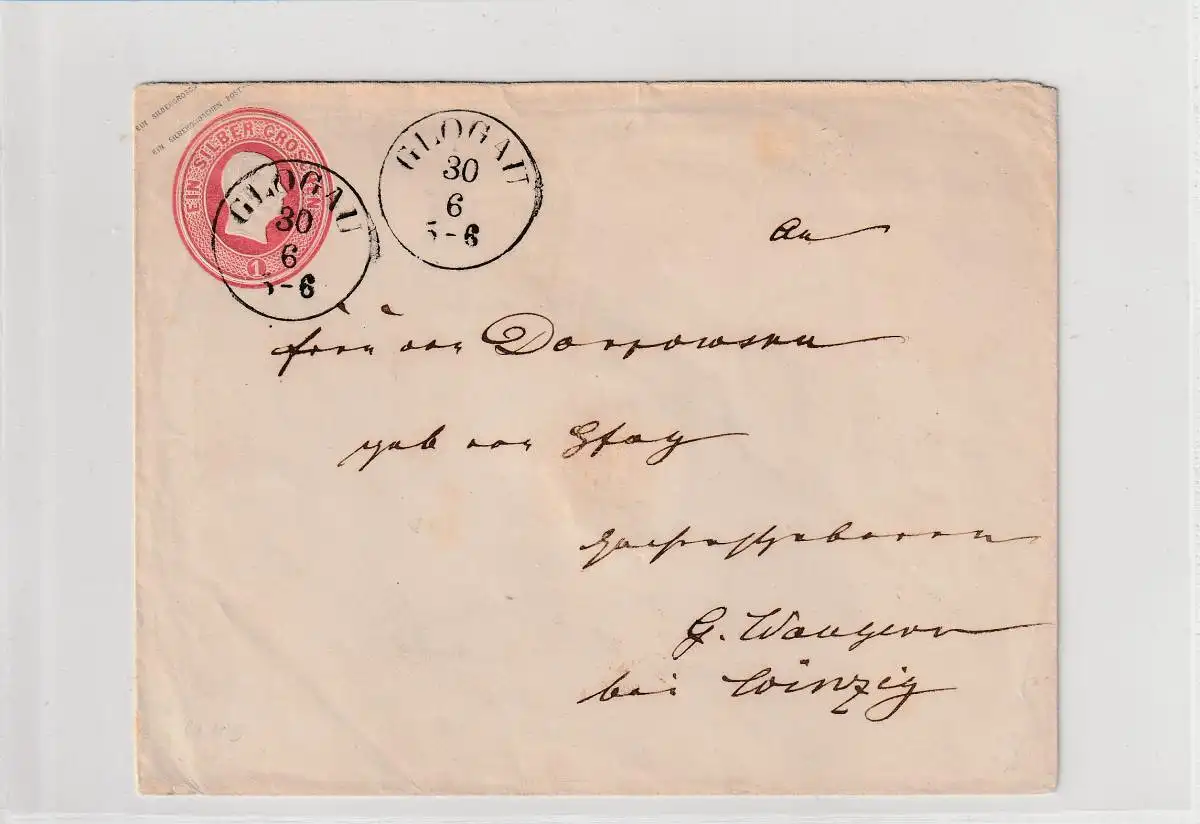 EIN SILBERGROSCHEN
EIN SILBERGROSCHEN POST-
EIN SILBER GROSCHEN
1
GLOGAU
30
6
5-6
GLOGAU
30
6
5-6
An
Frau von
geb von
Hochwohlgeboren
G. Wangern
bei Winzig